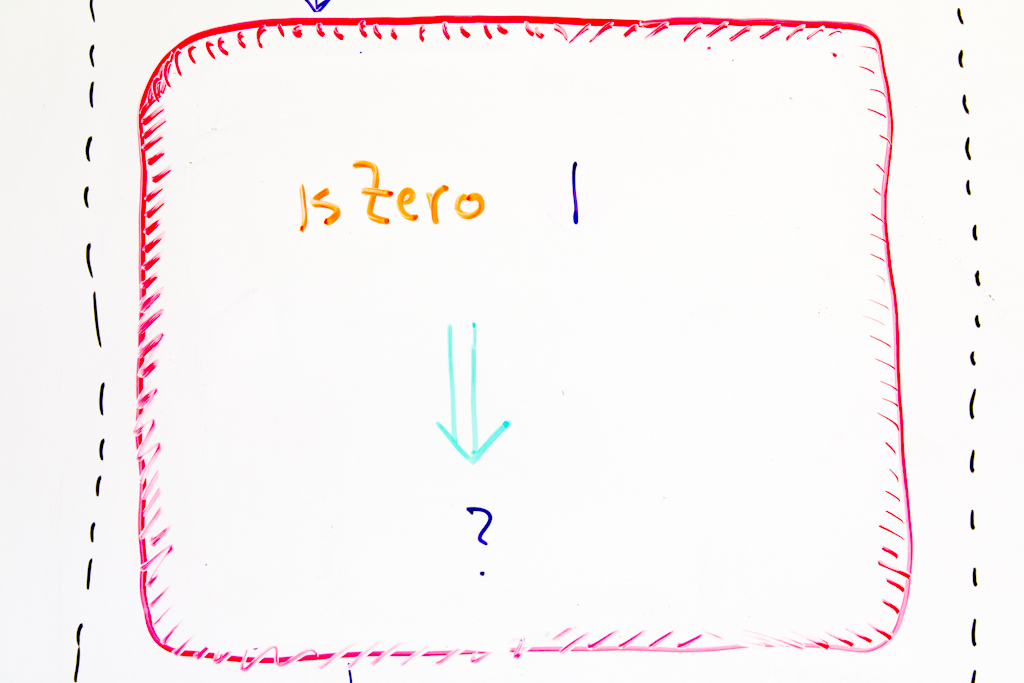 isZero 1
?